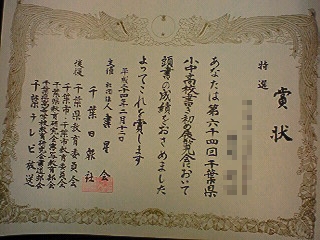 賞状
特選
あなたは第六十四回千葉県
小中高校書き初め展覧会において
頭書の成績をおさめました
よってこれを賞します
平成二十四年二月十二日
主催 社団法人 書星会
千葉日報社
後援 千葉県教育委員会
千葉市・千葉市教育委員会
千葉テレビ放送